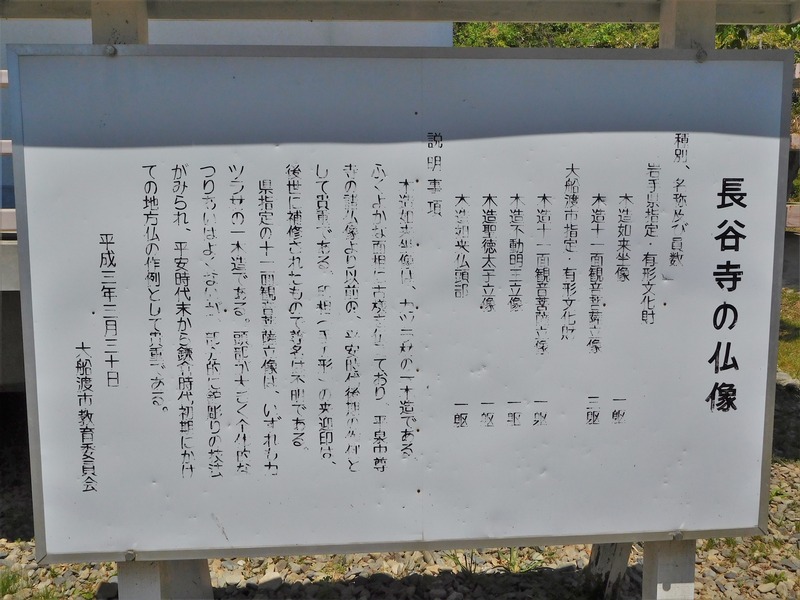 長谷寺の仏像
種別、名称及び員数
岩手県指定・有形文化財
木造如来坐像 一躯
木造十一面観音菩薩立像 三躯
大船渡市指定・有形文化財
木造十一面観音菩薩立像 一躯
木造不動明王立像 一躯
木造聖徳太子立像 一躯
木造如来仏頭部 一躯
説明事項
木造如来坐像は、カツラ材の一木造である。
ふくよかな面相に古様を伝えており、平泉中尊
寺の諸仏像より以前の、平安時代後期の作例と
して貴重である。印相(手の形)の来迎印は、
後世に補修されたもので尊名は不明である。
県指定の十一面観音菩薩立像は、いずれもカ
ツラ材の一木造である。頭部が大きく全体的な
つりあいはよくないが、部分的に鉈彫りの技法
がみられ、平安時代末から鎌倉時代初期にかけ
ての地方仏の作例として貴重である。
平成三年三月三十日
大船渡市教育委員会